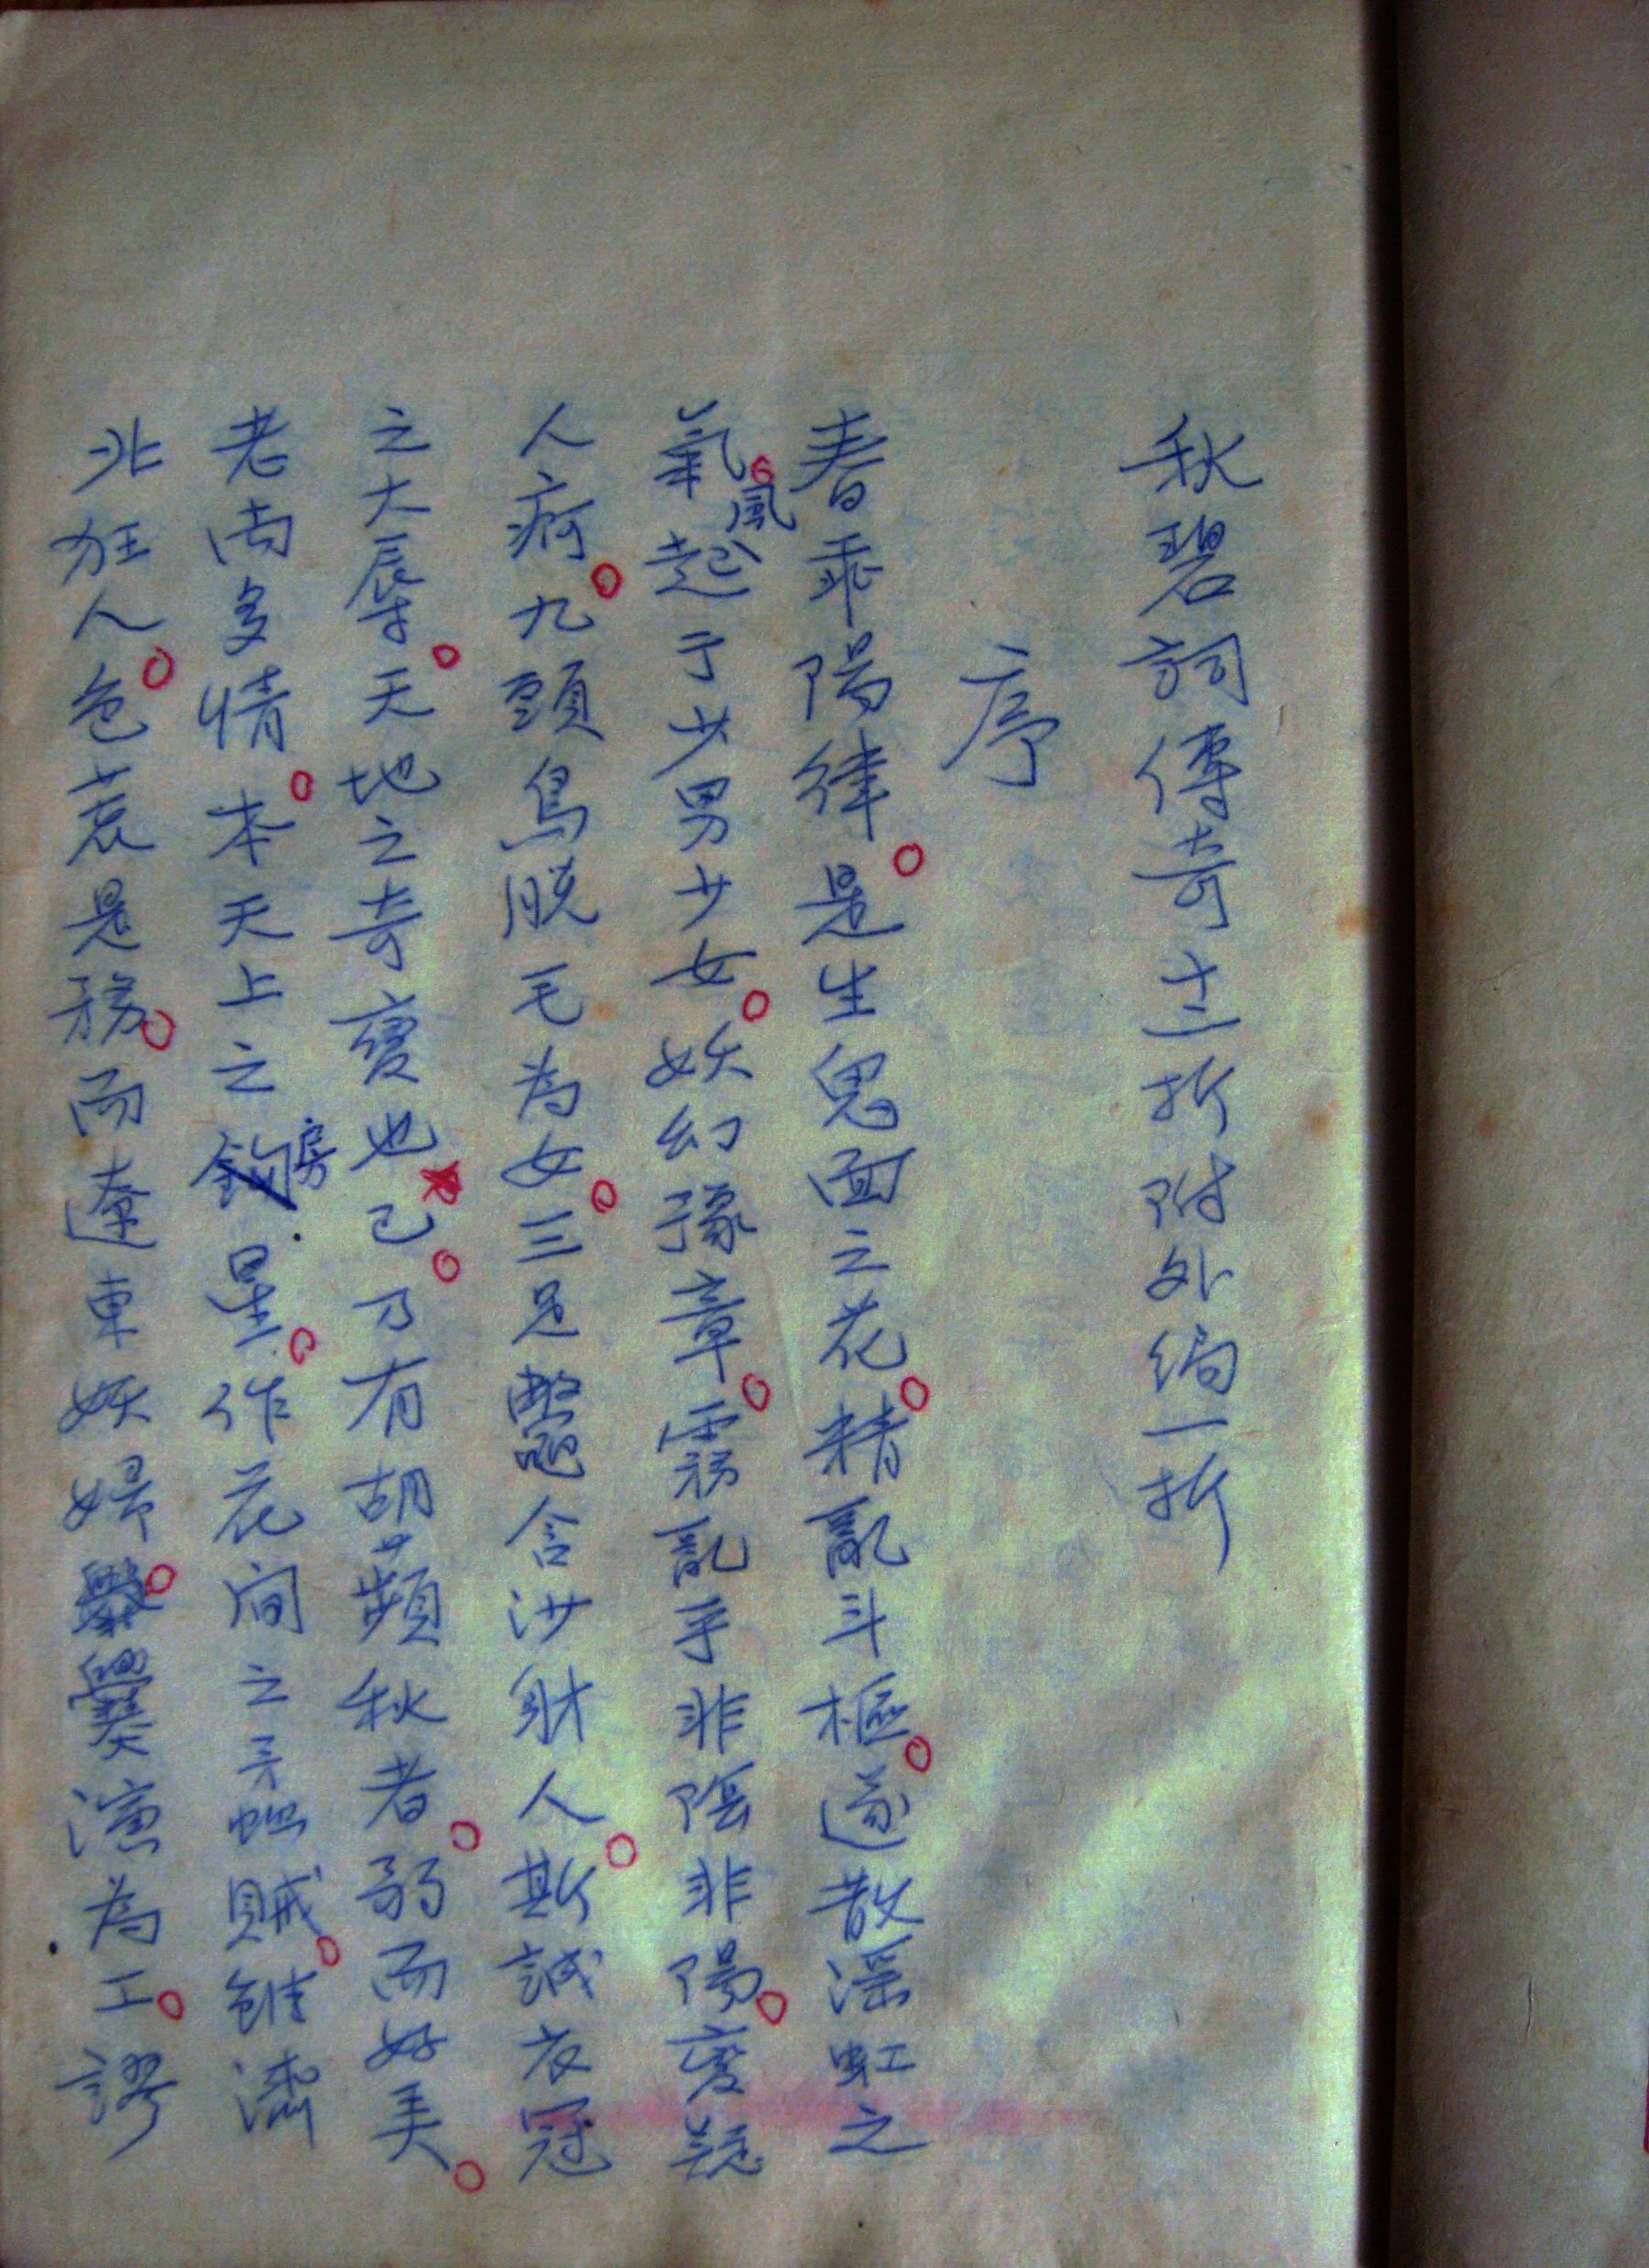 秋碧詞傳奇十二折附外編一折
序
春乖陽律。是生鬼面之花。精亂斗樞。遂散淫虹之
氣。風起于少男少女。妖幻豫章。霧亂乎非陰非陽。變疑
人疴。九頭鳥脫毛為女。三足鼈含沙射人。斯誠衣冠
之大辱。天地之奇變也已。乃有胡蘋秋者。弱而好美。
老尚多情。本天上之房星。作花間之蟊賊。雌濟
非狂人。色衰是務。而遼東妖婦。爨演為工。謬